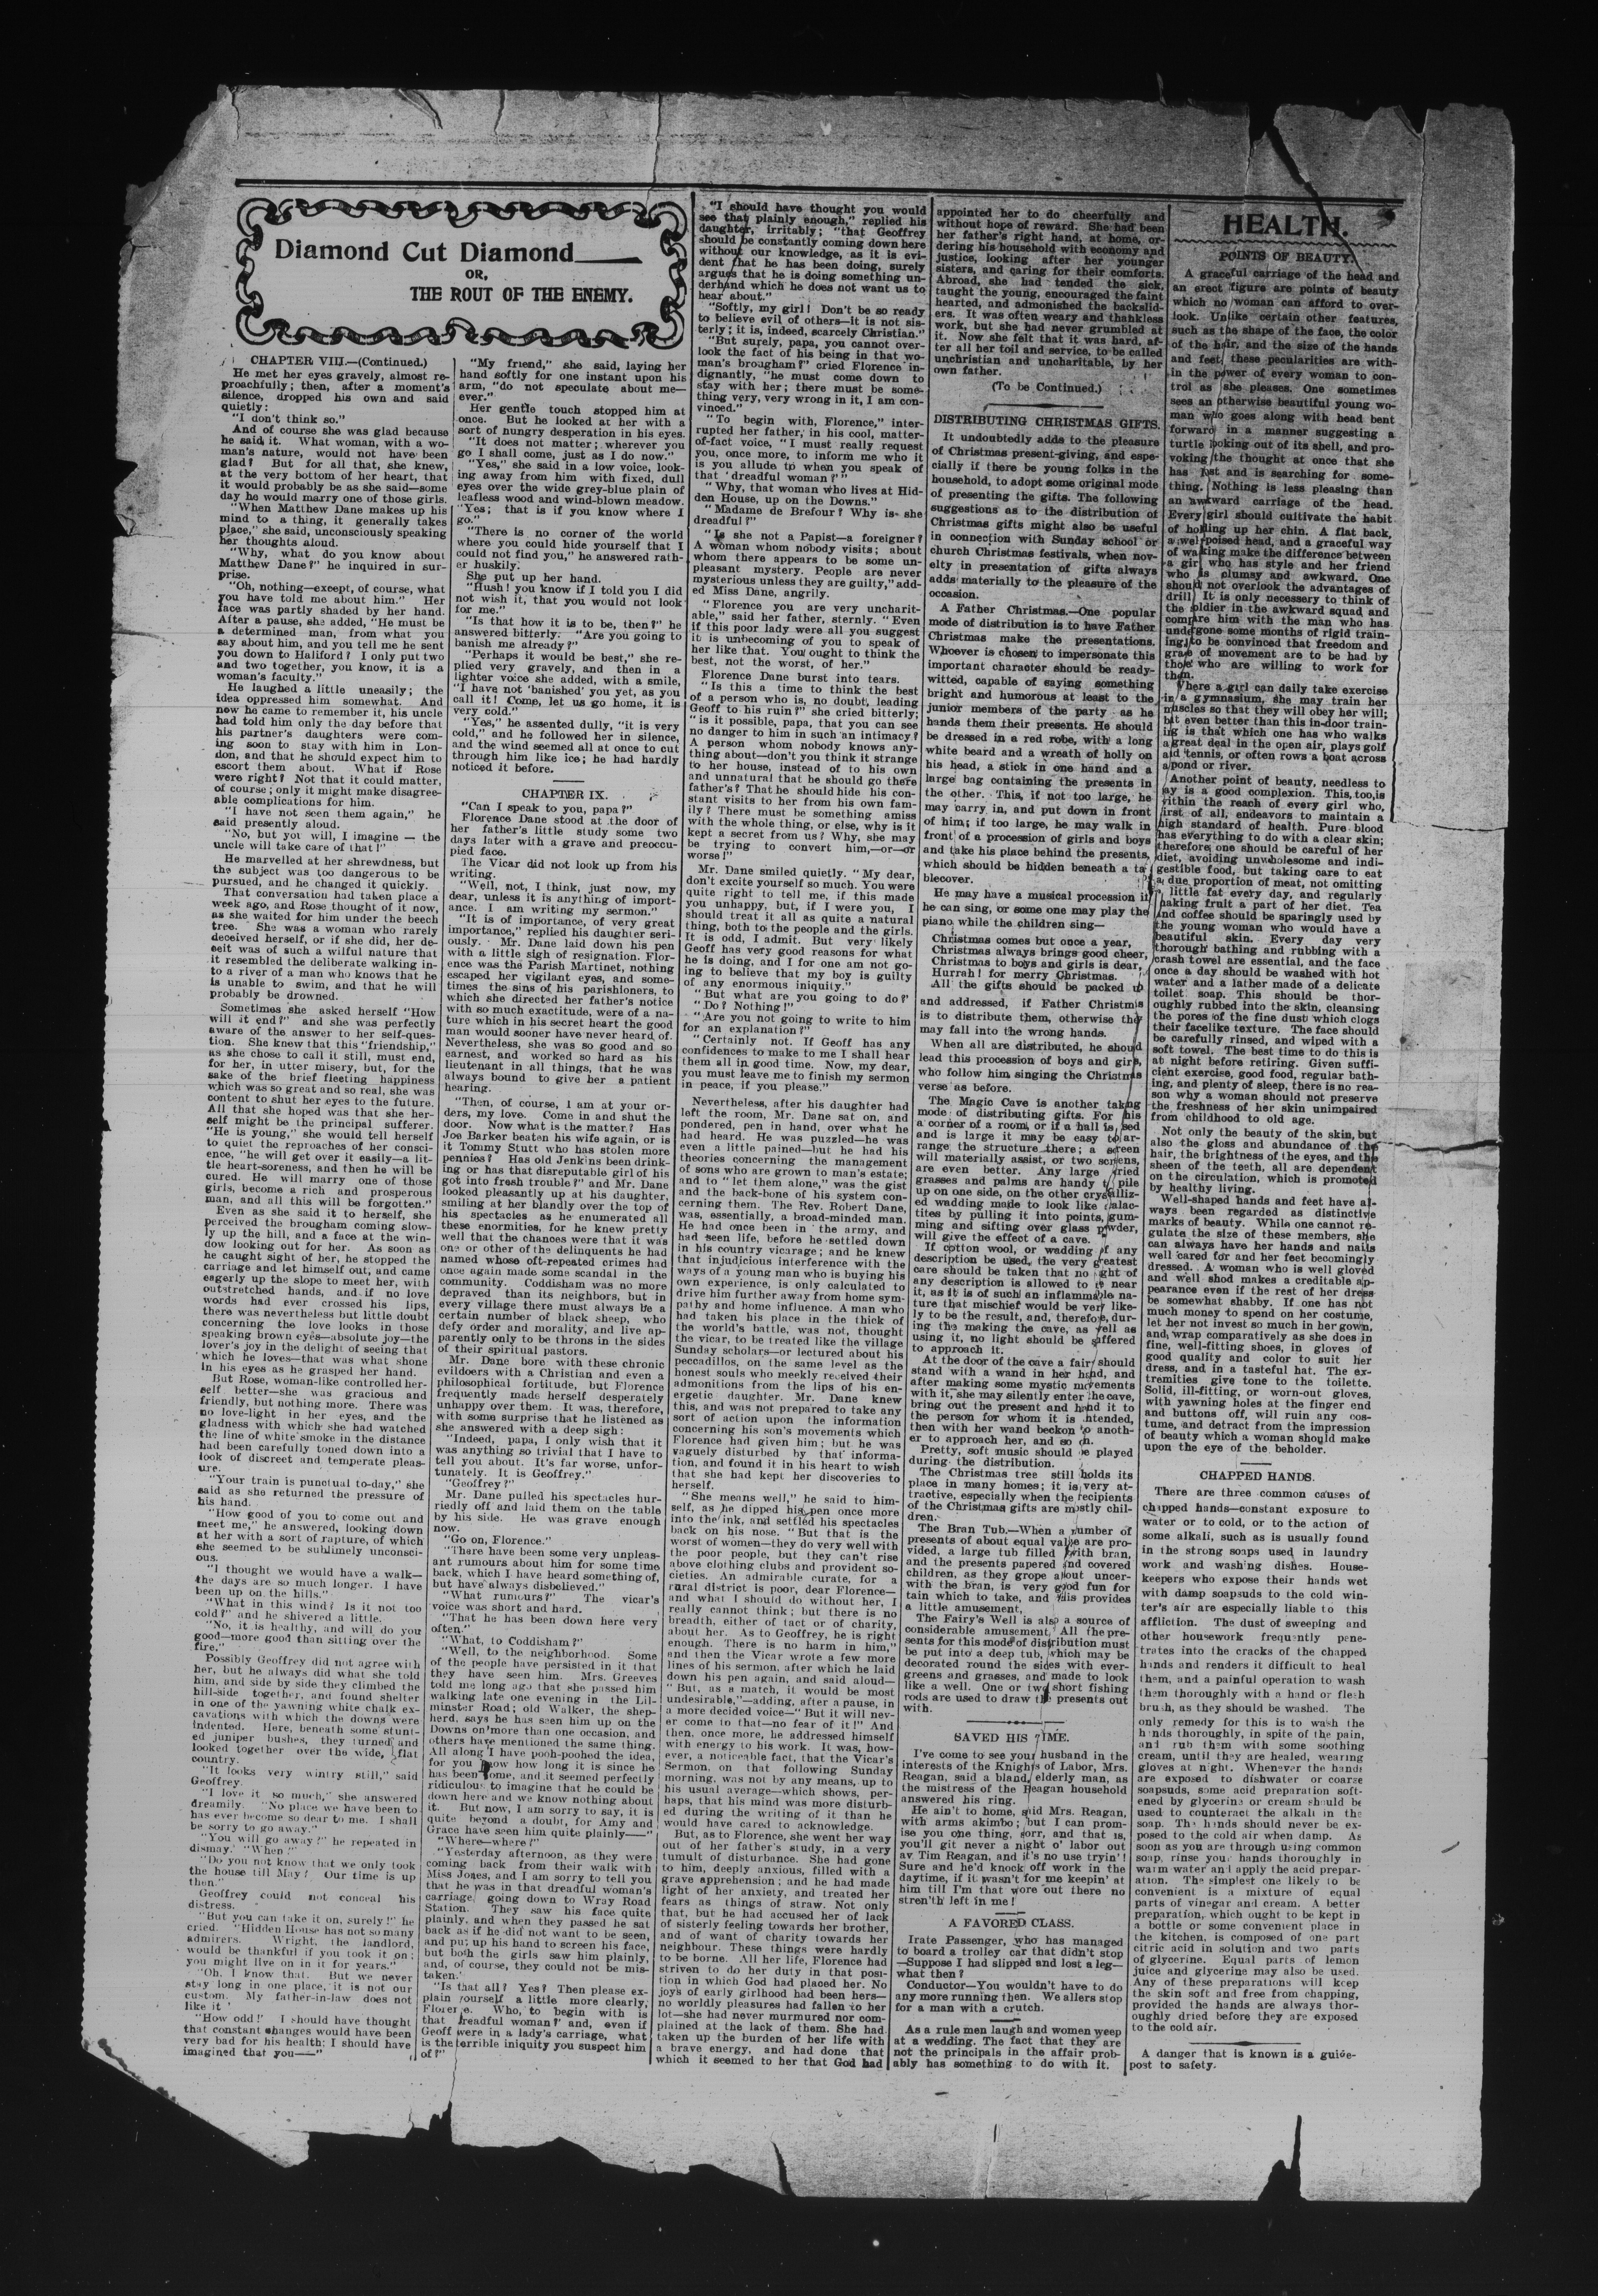 Diamond Cut Diamond
OR,
THE ROUT OF THE ENEMY.
CHAPTER VIII.—(Continued.)
He met her eyes gravely, almost re-
proachfully; then, after a moment's
silence, dropped his own and said
quietly:
"I don't think so."
And of course she was glad because
he said it. What woman, with a wo-
man's nature, would not have been
glad? But for all that, she knew,
at the very bottom of her heart, that
it would probably be as she said—some
day he would marry one of those girls.
"When Matthew Dane makes up his
mind to a thing, it generally takes
place," she said, unconsciously speaking
her thoughts aloud.
"Why, what do you know about
Matthew Dane?" he inquired in sur-
prise.
"Oh, nothing—except, of course, what
you have told me about him." Her
face was partly shaded by her hand.
After a pause, she added, "He must be
a determined man, from what you
say about him, and you tell me he sent
you down to Haliford? I only put two
and two together, you know, it is a
woman's faculty."
He laughed a little uneasily; the
idea oppressed him somewhat. And
now he came to remember it, his uncle
had told him only the day before that
his partner's daughters were com-
ing soon to stay with him in Lon-
don, and that he should expect him to
escort them about. What if Rose
were right? Not that it could matter,
of course; only it might make disagree-
able complications for him.
"I have not seen them again," he
said presently aloud.
"No, but you will, I imagine — the
uncle will take care of that!"
He marvelled at her shrewdness, but
the subject was too dangerous to be
pursued, and he changed it quickly.
That conversation had taken place a
week ago, and Rose thought of it now,
as she waited for him under the beech
tree. She was a woman who rarely
deceived herself, or if she did, her de-
ceit was of such a wilful nature that
it resembled the deliberate walking in-
to a river of a man who knows that he
is unable to swim, and that he will
probably be drowned.
Sometimes she asked herself "How
will it end?" and she was perfectly
aware of the answer to her self-ques-
tion. She knew that this "friendship,"
as she chose to call it still, must end,
for her, in utter misery, but, for the
sake of the brief fleeting happiness
which was so great and so real, she was
content to shut her eyes to the future.
All that she hoped was that she her-
self might be the principal sufferer.
"He is young," she would tell herself
to quiet the reproaches of her consci-
ence, "he will get over it easily—a lit-
tle heart-soreness, and then he will be
cured. He will marry one of those
girls, become a rich and prosperous
man, and all this will be forgotten."
Even as she said it to herself, she
perceived the brougham coming slow-
ly up the hill, and a face at the win-
dow looking out for her. As soon as
he caught sight of her, he stopped the
carriage and let himself out, and came
eagerly up the slope to meet her, with
outstretched hands, and if no love
words had ever crossed his lips,
there was nevertheless but little doubt
concerning the love looks in those
speaking brown eyes—absolute joy—the
lover's joy in the delight of seeing that
which he loves—that was what shone
in his eyes as he grasped her hand.
But Rose, woman-like controlled her-
self better—she was gracious and
friendly, but nothing more. There was
no love-light in her eyes, and the
gladness with which she had watched
the line of white smoke in the distance
had been carefully toned down into a
look of discreet and temperate pleas-
ure.
"Your train is punctual to-day," she
said as she returned the pressure of
his hand.
"How good of you to come out and
meet me," he answered, looking down
at her with a sort of rapture, of which
she seemed to be sublimely unconsci-
ous.
"I thought we would have a walk—
the days are so much longer. I have
been up on the hills."
"What in this wind? Is it not too
cold?" and he shivered a little.
"No, it is healthy, and will do you
good—more good than sitting over the
fire."
Possibly Geoffrey did not agree with
her, but he always did what she told
him, and side by side they climbed the
hill-side together, and found shelter
in one of the yawning white chalk ex-
cavations with which the downs were
indented. Here, beneath some stunt-
ed juniper bushes, they turned and
looked together over the wide, flat
country.
"It looks very wintry still," said
Geoffrey.
"I love it so much," she answered
dreamily. "No place we have been to
has ever become so dear to me. I shall
be sorry to go away."
"You will go away?" he repeated in
dismay. "When?"
"Do you not know that we only took
the house till May? Our time is up
then."
Geoffrey could not conceal his
distress.
"But you can take it on, surely!" he
cried. "Hidden House has not so many
admirers. Wright, the landlord,
would be thankful if you took it on;
you might live on in it for years."
"Oh, I know that. But we never
stay long in one place, it is not our
custom. My father-in-law does not
like it'
"How odd!" I should have thought
that constant changes would have been
very bad for his health; I should have
imagined that you——"
"My friend," she said, laying her
hand softly for one instant upon his
arm, "do not speculate about me—
ever."
Her gentle touch stopped him at
once. But he looked at her with a
sort of hungry desperation in his eyes.
"It does not matter; wherever you
go I shall come, just as I do now."
"Yes," she said in a low voice, look-
ing away from him with fixed, dull
eyes over the wide grey-blue plain of
leafless wood and wind-blown meadow.
"Yes; that is if you know where I
go."
"There is no corner of the world
where you could hide yourself that I
could not find you," he answered rath-
er huskily.
She put up her hand.
"Hush! you know if I told you I did
not wish it, that you would not look
for me."
"Is that how it is to be, then?" he
answered bitterly: "Are you going to
banish me already?"
"Perhaps it would be best," she re-
plied very gravely, and then in a
lighter voice she added, with a smile,
"I have not 'banished' you yet, as you
call it! Come, let us go home, it is
very cold."
"Yes," he assented dully, "it is very
cold," and he followed her in silence,
and the wind seemed all at once to cut
through him like ice; he had hardly
noticed it before.
CHAPTER IX.
"Can I speak to you, papa?"
Florence Dane stood at the door of
her father's little study some two
days later with a grave and preoccu-
pied face.
The Vicar did not look up from his
writing.
"Well, not, I think, just now, my
dear, unless it is anything of import-
ance. I am writing my sermon."
"It is of importance, of very great
importance," replied his daughter seri-
ously. Mr. Dane laid down his pen
with a little sigh of resignation. Flor-
ence was the Parish Martinet, nothing
escaped her vigilant eyes, and some-
times the sins of his parishioners, to
which she directed her father's notice
with so much exactitude, were of a na-
ture which in his secret heart the good
man would sooner have never heard of.
Nevertheless, she was so good and so
earnest, and worked so hard as his
lieutenant in all things, that he was
always bound to give her a patient
hearing.
"Then, of course, I am at your or-
ders, my love. Come in and shut the
door. Now what is the matter? Has
Joe Barker beaten his wife again, or is
it Tommy Stutt who has stolen more
pennies? Has old Jenkins been drink-
ing or has that disreputable girl of his
got into fresh trouble?" and Mr. Dane
looked pleasantly up at his daughter,
smiling at her blandly over the top of
his spectacles as he enumerated all
these enormities, for he knew pretty
well that the chances were that it was
one or other of the delinquents he had
named whose oft-repeated crimes had
once again made some scandal in the
community. Coddisham was no more
depraved than its neighbors, but in
every village there must always be a
certain number of black sheep, who
defy order and morality, and live ap-
parently only to be throns in the sides
of their spiritual pastors.
Mr. Dane bore with these chronic
evildoers with a Christian and even a
philosophical fortitude, but Florence
frequently made herself desperately
unhappy over them. It was, therefore,
with some surprise that he listened as
she answered with a deep sigh:
"Indeed, papa, I only wish that it
was anything so trivial that I have to
tell you about. It's far worse, unfor-
tunately. It is Geoffrey."
"Geoffrey?"
Mr. Dane pulled his spectacles hur-
riedly off and laid them on the table
by his side. He was grave enough
now.
"Go on, Florence."
"There have been some very unpleas-
ant rumours about him for some time
back, which I have heard something of,
but have always disbelieved."
"What rumours?" The vicar's
voice was short and hard.
"That he has been down here very
often."
"What, to Coddisham?"
"Well, to the neighborhood. Some
of the people have persisted in it that
they have seen him. Mrs. Greeves
told me long ago that she passed him
walking late one evening in the Lil-
minster Road; old Walker, the shep-
herd, says he has seen him up on the
Downs on more than one occasion, and
others have mentioned the same thing.
All along I have pooh-poohed the idea,
for you know how long it is since he
has been home, and it seemed perfectly
ridiculous to imagine that he could be
down here and we know nothing about
it. But now, I am sorry to say, it is
quite beyond a doubt, for Amy and
Grace have seen him quite plainly——"
"Where—where?"
"Yesterday afternoon, as they were
coming back from their walk with
Miss Jones, and I am sorry to tell you
that he was in that dreadful woman's
carriage, going down to Wray Road
Station. They saw his face quite
plainly, and when they passed he sat
back as if he did not want to be seen,
and put up his hand to screen his face,
but both the girls saw him plainly,
and, of course, they could not be mis-
taken."
"Is that all? Yes? Then please ex-
plain yourself a little more clearly,
Florence. Who, to begin with is
that dreadful woman? and, even if
Geoff were in a lady's carriage, what
is the terrible iniquity you suspect him
of?"
"I should have thought you would
see that plainly enough," replied his
daughter, irritably; "that Geoffrey
should be constantly coming down here
without our knowledge, as it is evi-
dent that he has been doing, surely
argues that he is doing something un-
derhand which he does not want us to
hear about."
"Softly, my girl! Don't be so ready
to believe evil of others—it is not sis-
terly; it is, indeed, scarcely Christian."
"But surely, papa, you cannot over-
look the fact of his being in that wo-
man's brougham?" cried Florence in-
dignantly, "he must come down to
stay with her; there must be some-
thing very, very wrong in it, I am con-
vinced."
"To begin with, Florence," inter-
rupted her father, in his cool, matter-
of-fact voice, "I must really request
you, once more, to inform me who it
is you allude to when you speak of
that 'dreadful woman?'"
"Why, that woman who lives at Hid-
den House, up on the Downs."
"Madame de Brefour? Why is she
dreadful?"
"Is she not a Papist—a foreigner?
A woman whom nobody visits; about
whom there appears to be some un-
pleasant mystery. People are never
mysterious unless they are guilty," add-
ed Miss Dane, angrily.
"Florence you are very uncharit-
able," said her father, sternly. "Even
if this poor lady were all you suggest
it is unbecoming of you to speak of
her like that. You ought to think the
best, not the worst, of her."
Florence Dane burst into tears.
"Is this a time to think the best
of a person who is, no doubt, leading
Geoff to his ruin?" she cried bitterly;
"is it possible, papa, that you can see
no danger to him in such an intimacy?
A person whom nobody knows any-
thing about—don't you think it strange
to her house, instead of to his own
and unnatural that he should go there
father's? That he should hide his con-
stant visits to her from his own fam-
ily? There must be something amiss
with the whole thing, or else, why is it
kept a secret from us? Why, she may
be trying to convert him,—or—or
worse!"
Mr. Dane smiled quietly. "My dear,
don't excite yourself so much. You were
quite right to tell me, if this made
you unhappy, but, if I were you, I
should treat it all as quite a natural
thing, both to the people and the girls.
It is odd, I admit. But very likely
Geoff has very good reasons for what
he is doing, and I for one am not go-
ing to believe that my boy is guilty
of any enormous iniquity."
"But what are you going to do?"
"Do? Nothing!"
"Are you not going to write to him
for an explanation?"
"Certainly not. If Geoff has any
confidences to make to me I shall hear
them all in good time. Now, my dear,
you must leave me to finish my sermon
in peace, if you please."
Nevertheless, after his daughter had
left the room, Mr. Dane sat on, and
pondered, pen in hand, over what he
had heard. He was puzzled—he was
even a little pained—but he had his
theories concerning the management
of sons who are grown to man's estate;
and to "let them alone," was the gist
and the back-bone of his system con-
cerning them. The Rev. Robert Dane,
was, essentially, a broad-minded man.
He had once been in the army, and
had seen life, before he settled down
in his country vicarage; and he knew
that injudicious interference with the
ways of a young man who is buying his
own experience, is only calculated to
drive him further away from home sym-
pathy and home influence. A man who
had taken his place in the thick of
the world's battle, was not, thought
the vicar, to be treated like the village
Sunday scholars—or lectured about his
peccadillos, on the same level as the
honest souls who meekly received their
admonitions from the lips of his en-
ergetic daughter. Mr. Dane knew
this, and was not prepared to take any
sort of action upon the information
concerning his son's movements which
Florence had given him; but he was
vaguely disturbed by that informa-
tion, and found it in his heart to wish
that she had kept her discoveries to
herself.
"She means well," he said to him-
self, as he dipped his pen once more
into the ink, and settled his spectacles
back on his nose. "But that is the
worst of women—they do very well with
the poor people, but they can't rise
above clothing clubs and provident so-
cieties. An admirable curate, for a
rural district is poor, dear Florence—
and what I should do without her, I
really cannot think; but there is no
breadth, either of tact or of charity,
about her. As to Geoffrey, he is right
enough. There is no harm in him,"
and then the Vicar wrote a few more
lines of his sermon, after which he laid
down his pen again, and said aloud—
"But, as a match, it would be most
undesirable,"—adding, after a pause, in
a more decided voice—"But it will nev-
er come to that—no fear of it!" And
then, once more, he addressed himself
with energy to his work. It was, how-
ever, a noticeable fact, that the Vicar's
Sermon, on that following Sunday
morning, was not by any means, up to
his usual average—which shows, per-
haps, that his mind was more disturb-
ed during the writing of it than he
would have cared to acknowledge.
But, as to Florence, she went her way
out of her father's study, in a very
tumult of disturbance. She had gone
to him, deeply anxious, filled with a
grave apprehension; and he had made
light of her anxiety, and treated her
fears as things of straw. Not only
that, but he had accused her of lack
of sisterly feeling towards her brother,
and of want of charity towards her
neighbour. These things were hardly
to be borne. All her life, Florence had
striven to do her duty in that posi-
tion in which God had placed her. No
joys of early girlhood had been hers—
no worldly pleasures had fallen to her
lot—she had never murmured nor com-
plained at the lack of them. She had
taken up the burden of her life with
a brave energy, and had done that
which it seemed to her that God had
appointed her to do cheerfully and
without hope of reward. She had been
her father's right hand, at home, or-
dering his household with economy and
justice, looking after her younger
sisters, and caring for their comforts.
Abroad, she had tended the sick,
taught the young, encouraged the faint
hearted, and admonished the backslid-
ers. It was often weary and thankless
work, but she had never grumbled at
it. Now she felt that it was hard, af-
ter all her toil and service, to be called
unchristian and uncharitable, by her
own father.
(To be Continued.)
DISTRIBUTING CHRISTMAS GIFTS.
It undoubtedly adds to the pleasure
of Christmas present-giving, and espe-
cially if there be young folks in the
household, to adopt some original mode
of presenting the gifts. The following
suggestions as to the distribution of
Christmas gifts might also be useful
in connection with Sunday school or
church Christmas festivals, when nov-
elty in presentation of gifts always
adds materially to the pleasure of the
occasion.
A Father Christmas.—One popular
mode of distribution is to have Father
Christmas make the presentations.
Whoever is chosen to impersonate this
important character should be ready-
witted, capable of saying something
bright and humorous at least to the
junior members of the party as he
hands them their presents. He should
be dressed in a red robe, with a long
white beard and a wreath of holly on
his head, a stick in one hand and a
large bag containing the presents in
the other. This, if not too large, he
may carry in, and put down in front
of him; if too large, he may walk in
front of a procession of girls and boys
and take his place behind the presents,
which should be hidden beneath a ta
blecover.
He may have a musical procession if
he can sing, or some one may play the
piano while the children sing—
Christmas comes but once a year,
Christmas always brings good cheer,
Christmas to boys and girls is dear,
Hurrah! for merry Christmas.
All the gifts should be packed up
and addressed, if Father Christmas
is to distribute them, otherwise they
may fall into the wrong hands.
When all are distributed, he should
lead this procession of boys and girls,
who follow him singing the Christmas
verse as before.
The Magic Cave is another taking
mode of distributing gifts. For this
a corner of a room, or if a hall is used
and is large it may be easy to ar-
range the structure there; a screen
will materially assist, or two screens,
are even better. Any large dried
grasses and palms are handy to pile
up on one side, on the other crystalliz-
ed wadding made to look like stalac-
tites by pulling it into points, gum-
ming and sifting over glass powder,
will give the effect of a cave.
If cotton wool, or wadding of any
description be used, the very greatest
care should be taken that no light of
any description is allowed to be near
it, as it is of such an inflammable na-
ture that mischief would be very like-
ly to be the result, and, therefore, dur-
ing the making the cave, as well as
using it, no light should be suffered
to approach it.
At the door of the cave a fairy should
stand with a wand in her hand, and
after making some mystic movements
with it, she may silently enter the cave,
bring out the present and hand it to
the person for whom it is intended,
then with her wand beckon to anoth-
er to approach her, and so on.
Pretty, soft music should be played
during the distribution.
The Christmas tree still holds its
place in many homes; it is very at-
tractive, especially when the recipients
of the Christmas gifts are mostly chil-
dren.
The Bran Tub.—When a number of
presents of about equal value are pro-
vided, a large tub filled with bran,
and the presents papered and covered
children, as they grope about uncer-
with the bran, is very good fun for
tain which to take, and this provides
a little amusement.
The Fairy's Well is also a source of
considerable amusement. All the pre-
sents for this mode of distribution must
be put into a deep tub, which may be
decorated round the sides with ever-
greens and grasses, and made to look
like a well. One or two short fishing
rods are used to draw the presents out
with.
SAVED HIS TIME.
I've come to see your husband in the
interests of the Knights of Labor, Mrs.
Reagan, said a bland, elderly man, as
the mistress of the Reagan household
answered his ring.
He ain't to home, said Mrs. Reagan,
with arms akimbo; but I can prom-
ise you one thing, sorr, and that is,
you'll git never a night o' labor out
av Tim Reagan, and it's no use tryin'!
Sure and he'd knock off work in the
daytime, if it wasn't for me keepin' at
him till I'm that wore out there no
stren'th left in me!
A FAVORED CLASS.
Irate Passenger, who has managed
to board a trolley car that didn't stop
—Suppose I had slipped and lost a leg—
what then?
Conductor—You wouldn't have to do
any more running then. We allers stop
for a man with a crutch.
As a rule men laugh and women weep
at a wedding. The fact that they are
not the principals in the affair prob-
ably has something to do with it.
HEALTH.
POINTS OF BEAUTY.
A graceful carriage of the head and
an erect figure are points of beauty
which no woman can afford to over-
look. Unlike certain other features,
such as the shape of the face, the color
of the hair, and the size of the hands
and feet, these pecularities are with-
in the power of every woman to con-
trol as she pleases. One sometimes
sees an otherwise beautiful young wo-
man who goes along with head bent
forward in a manner suggesting a
turtle looking out of its shell, and pro-
voking the thought at once that she
has lost and is searching for some-
thing. Nothing is less pleasing than
an awkward carriage of the head.
Every girl should cultivate the habit
of holding up her chin. A flat back,
a well poised head, and a graceful way
of walking make the difference between
a girl who has style and her friend
who is clumsy and awkward. One
should not overlook the advantages of
drill. It is only necessery to think of
the soldier in the awkward squad and
compare him with the man who has
undergone some months of rigid train-
ing, to be convinced that freedom and
grace of movement are to be had by
those who are willing to work for
them.
Where a girl can daily take exercise
in a gymnasium, she may train her
muscles so that they will obey her will;
but even better than this in-door train-
ing is that which one has who walks
a great deal in the open air, plays golf
and tennis, or often rows a boat across
a pond or river.
Another point of beauty, needless to
say is a good complexion. This, too, is
within the reach of every girl who,
first of all, endeavors to maintain a
high standard of health. Pure blood
has everything to do with a clear skin;
therefore one should be careful of her
diet, avoiding unwholesome and indi-
gestible food, but taking care to eat
a due proportion of meat, not omitting
a little fat every day, and regularly
making fruit a part of her diet. Tea
and coffee should be sparingly used by
the young woman who would have a
beautiful skin. Every day very
thorough bathing and rubbing with a
crash towel are essential, and the face
once a day should be washed with hot
water and a lather made of a delicate
toilet soap. This should be thor-
oughly rubbed into the skin, cleansing
the pores of the fine dust which clogs
their facelike texture. The face should
be carefully rinsed, and wiped with a
soft towel. The best time to do this is
at night before retiring. Given suffi-
cient exercise, good food, regular bath-
ing, and plenty of sleep, there is no rea-
son why a woman should not preserve
the freshness of her skin unimpaired
from childhood to old age.
Not only the beauty of the skin, but
also the gloss and abundance of the
hair, the brightness of the eyes, and the
sheen of the teeth, all are dependent
on the circulation, which is promoted
by healthy living.
Well-shaped hands and feet have al-
ways been regarded as distinctive
marks of beauty. While one cannot re-
gulate the size of these members, she
can always have her hands and nails
well cared for and her feet becomingly
dressed. A woman who is well gloved
and well shod makes a creditable ap-
pearance even if the rest of her dress
be somewhat shabby. If one has not
much money to spend on her costume,
let her not invest so much in her gown,
and wrap comparatively as she does in
fine, well-fitting shoes, in gloves of
good quality and color to suit her
dress, and in a tasteful hat. The ex-
tremities give tone to the toilette.
Solid, ill-fitting, or worn-out gloves,
with yawning holes at the finger end
and buttons off, will ruin any cos-
tume, and detract from the impression
of beauty which a woman should make
upon the eye of the beholder.
CHAPPED HANDS.
There are three common causes of
chapped hands—constant exposure to
water or to cold, or to the action of
some alkali, such as is usually found
in the strong soaps used in laundry
work and washing dishes. House-
keepers who expose their hands wet
with damp soapsuds to the cold win-
ter's air are especially liable to this
affliction. The dust of sweeping and
other housework frequently pene-
trates into the cracks of the chapped
hands and renders it difficult to heal
them, and a painful operation to wash
them thoroughly with a hand or flesh
brush, as they should be washed. The
only remedy for this is to wash the
hands thoroughly, in spite of the pain,
and rub them with some soothing
cream, until they are healed, wearing
gloves at night. Whenever the hands
are exposed to dishwater or coarse
soapsuds, some acid preparation soft-
ened by glycerine or cream should be
used to counteract the alkali in the
soap. The hands should never be ex-
posed to the cold air when damp. As
soon as you are through using common
soap, rinse your hands thoroughly in
warm water and apply the acid prepar-
ation. The simplest one likely to be
convenient is a mixture of equal
parts of vinegar and cream. A better
preparation, which ought to be kept in
a bottle or some convenient place in
the kitchen, is composed of one part
citric acid in solution and two parts
of glycerine. Equal parts of lemon
juice and glycerine may also be used.
Any of these preparations will keep
the skin soft and free from chapping,
provided the hands are always thor-
oughly dried before they are exposed
to the cold air.
A danger that is known is a guide-
post to safety.